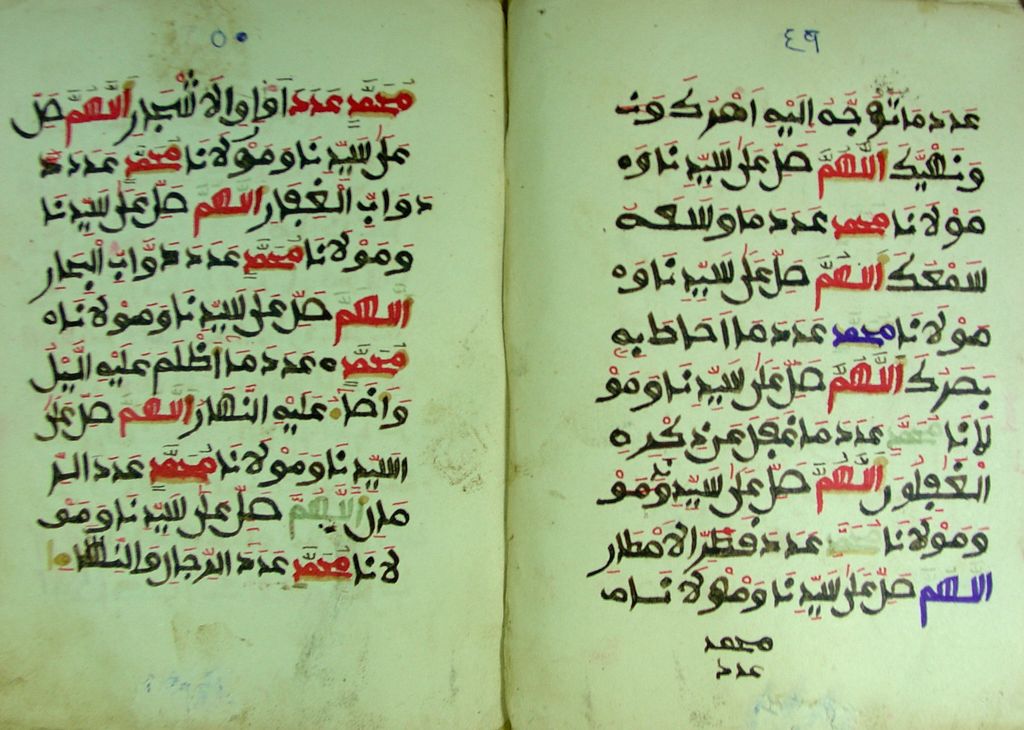 ٤٩
عدد ما توجه إليه أمرك و
ونهيك اللهم صل على سيدنا و
مولانا محمد عدد ما وسعه
سمعك اللهم صل على سيدنا و
مولانا محمد عدد ما أحاط به
بصرك اللهم صل على سيدنا ومو
لانا محمد عدد ما غفل عن ذكره
الغافلون اللهم صل على سيدنا ومو
ومولانا محمد عدد قطر الأمطار
اللهم صل على سيدنا ومولانا م
محمد
عدد
٥٠
محمد عدد أوراق الأشجار اللهم صل
على سيدنا ومولانا محمد عدد د
دواب القفار اللهم صل على سيدنا
ومولانا محمد عدد دواب البحار
اللهم صل على سيدنا ومولانا
محمد عدد ما أظلم عليه الليل
وأضاء عليه النهار اللهم صل على
سيدنا ومولانا محمد عدد الر
مال اللهم صل على سيدنا ومو
لانا محمد عدد الرجال والنساء